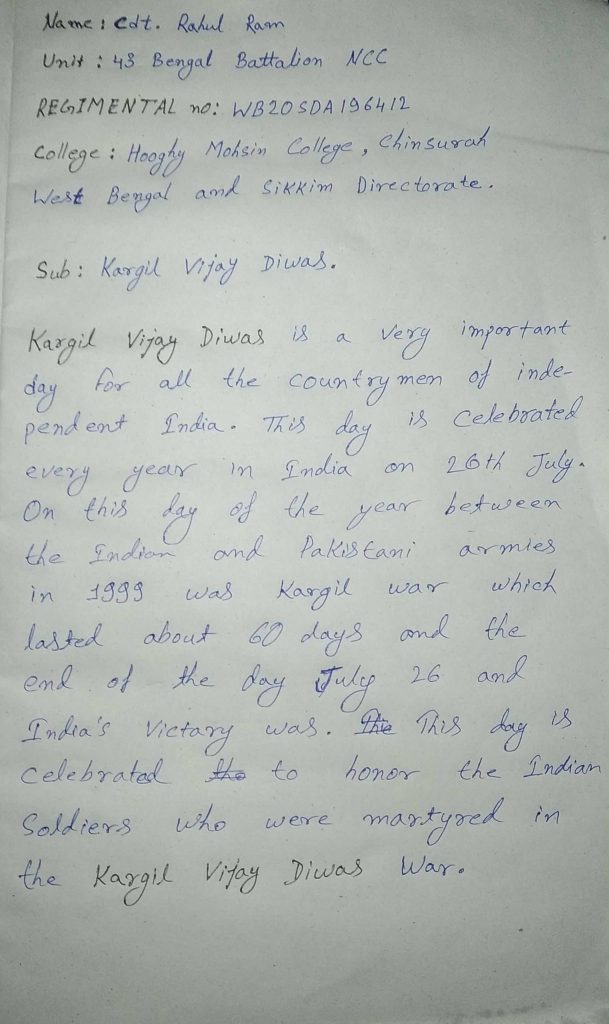 Name : Cdt. Rahul Ram
Unit : 43 Bengal Battalion NCC
REGIMENTAL no: WB20SDA196412
College : Hooghy Mohsin College, Chinsurah
West Bengal and Sikkim Directorate.
Sub : Kargil Vijay Diwas.
Kargil Vijay Diwas is a very important
day for all the countrymen of inde-
pendent India. This day is celebrated
every year in India on 26th July.
On this day of the year between
the Indian and Pakistani armies
in 1999 was Kargil war which
lasted about 60 days and the
end of the day July 26 and
India's Victary was. The This day is
celebrated the to honor the Indian
Soldiers who were martyred in
the Kargil Vijay Diwas War.